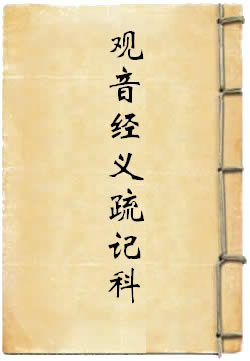 观音经义疏记科